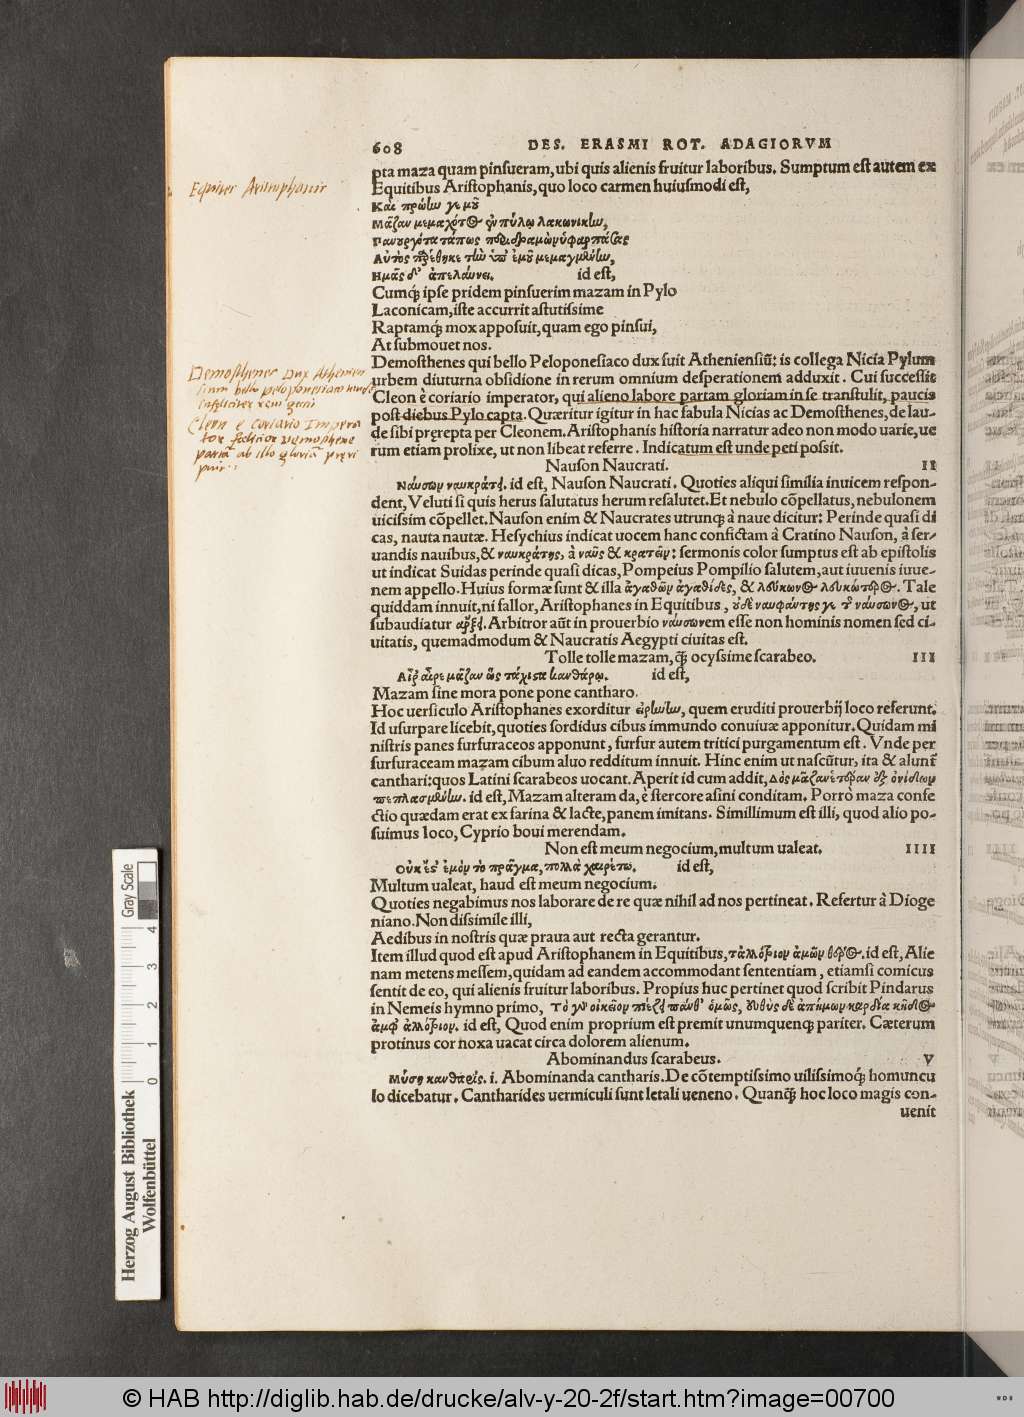 608 DES. ERASMI ROT. ADAGIORVM
pta maza quam pinsueram, ubi quis alienis fruitur laboribus. Sumptum est autem ex
Equitibus Aristophanis, quo loco carmen huiusmodi est,
Καὶ πρώην γε μοῦ
Μᾶζαν μεμαχότος ἐν πύλῳ λακωνικὴν,
Πανουργότατά πως περιδραμὼν ὑφαρπάσας
Αὐτὸς παρέθηκε τὴν ὑπ' ἐμοῦ μεμαγμένην,
Ημᾶς δ' ἀπελαύνει. id est,
Cumq́ꝫ ipse pridem pinsuerim mazam in Pylo
Laconicam, iste accurrit astutissime
Raptamq́ꝫ mox apposuit, quam ego pinsui,
At submouet nos.
Demosthenes qui bello Peloponesiaco dux fuit Atheniensiũ: is collega Nicia Pylum
urbem diuturna obsidione in rerum omnium desperationem adduxit. Cui successit
Cleon è coriario imperator, qui alieno labore partam gloriam in se transtulit, paucis
post diebus Pylo capta. Quæritur igitur in hac fabula Nicias ac Demosthenes, de lau-
de sibi prærepta per Cleonem. Aristophanis historia narratur adeo non modo uarie, ue
rum etiam prolixe, ut non libeat referre. Indicatum est unde peti possit.
Nauson Naucrati. II
Ναύσων ναυκράτει. id est, Nauson Naucrati. Quoties aliqui similia inuicem respon-
dent, Veluti si quis herus salutatus herum resalutet. Et nebulo cõpellatus, nebulonem
uicissim cõpellet. Nauson enim & Naucrates utrunq́ꝫ à naue dicitur: Perinde quasi di
cas, nauta nautæ. Hesychius indicat uocem hanc confictam à Cratino Nauson, à ser-
uandis nauibus, & ναυκράτης, à ναῦς & κρατῶν: sermonis color sumptus est ab epistolis
ut indicat Suidas perinde quasi dicas, Pompeius Pompilio salutem, aut iuuenis iuue-
nem appello. Huius formæ sunt & illa ἀγαθῶν ἀγαθίδες, & λεύκωνος λευκώτερος. Tale
quiddam innuit, ni fallor, Aristophanes in Equitibus, οὐδὲ ναυφάντης γε τοῦ ναύσωνος, ut
subaudiatur ἄρξει. Arbitror aũt in prouerbio ναύσωνem esse non hominis nomen sed ci-
uitatis, quemadmodum & Naucratis Aegypti ciuitas est.
Tolle tolle mazam, q̃ꝫ ocyssime scarabeo. III
Αἶρ' αἶρε μᾶζαν ὡς τάχιστα κανθάρῳ. id est,
Mazam sine mora pone pone cantharo.
Hoc uersiculo Aristophanes exorditur εἰρήνην, quem eruditi prouerbij loco referunt.
Id usurpare licebit, quoties sordidus cibus immundo conuiuæ apponitur. Quidam mi
nistris panes furfuraceos apponunt, furfur autem tritici purgamentum est. Vnde per
furfuraceam mazam cibum aluo redditum innuit. Hinc enim ut nascũtur, ita & alunt̃
canthari: quos Latini scarabeos uocant. Aperit id cum addit, Δὸς μᾶζαν ἑτέραν ἐξ ὀνίδων
πεπλασμένην. id est, Mazam alteram da, è stercore asini conditam. Porrò maza confe
ctio quædam erat ex farina & lacte, panem imitans. Simillimum est illi, quod alio po-
suimus loco, Cyprio boui merendam.
Non est meum negocium, multum ualeat. IIII
Οὐκ ἔστ' ἐμὸν τὸ πρᾶγμα, πολλὰ χαιρέτω. id est,
Multum ualeat, haud est meum negocium.
Quoties negabimus nos laborare de re quæ nihil ad nos pertineat. Refertur à Dioge
niano. Non dissimile illi,
Aedibus in nostris quæ praua aut recta gerantur.
Item illud quod est apud Aristophanem in Equitibus, τἀλλότριον ἀμῶν θέρος. id est, Alie
nam metens messem, quidam ad eandem accommodant sententiam, etiamsi comicus
sentit de eo, qui alienis fruitur laboribus. Propius huc pertinet quod scribit Pindarus
in Nemeis hymno primo, Τὸ γὰρ οἰκεῖον πιέζει πάνθ' ὁμῶς, εὐθὺς δὲ ἀπήμων καρδία κῆδος
ἀμφ' ἀλλότριον. id est, Quod enim proprium est premit unumquenq́ꝫ pariter. Cæterum
protinus cor noxa uacat circa dolorem alienum.
Abominandus scarabeus. V
Μύση κανθαρίς. i. Abominanda cantharis. De cõtemptissimo uilissimoq́ꝫ homuncu
lo dicebatur. Cantharides uermiculi sunt letali ueneno. Quanq̃ꝫ hoc loco magis con-
uenit
Equites Aristophanis
Demosthenes Dux Athenien
sium bello peloponesiaco
infeliciter rem gerit
Cleon e Coriario Impera
tor felicior Demosthene
partã ab illo gloriã præri
puit
Gray Scale
4 3 2 1 0
Herzog August Bibliothek
Wolfenbüttel
© HAB http://diglib.hab.de/drucke/alv-y-20-2f/start.htm?image=00700
WDB